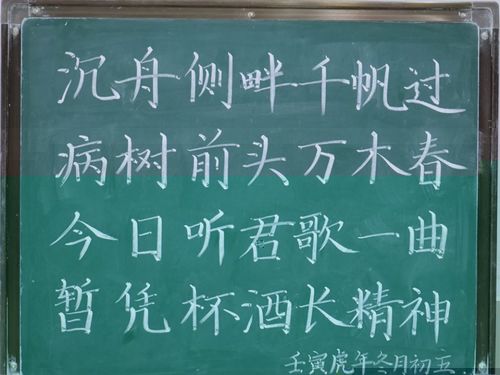 沉舟侧畔千帆过
病树前头万木春
今日听君歌一曲
暂凭杯酒长精神
壬寅虎年冬月初五